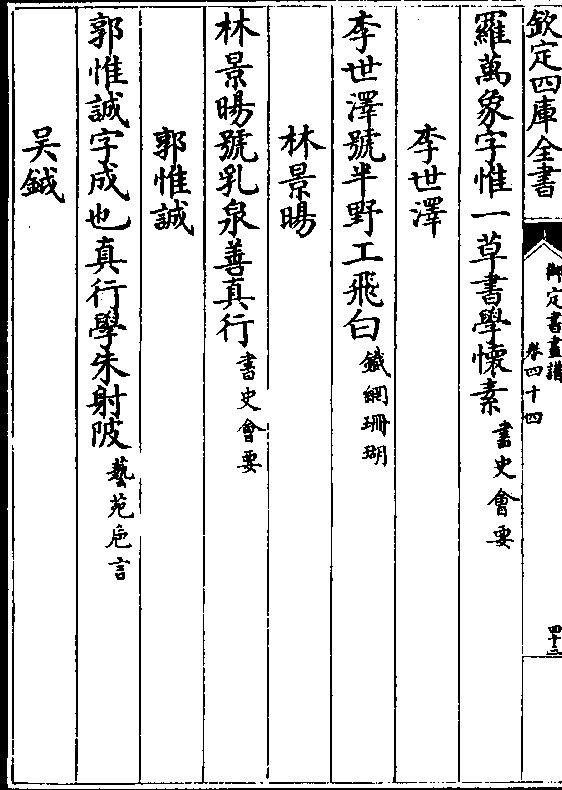 欽定四庫全書
御定書畫譜
卷四十四
四十三
羅萬象字惟一草書學懷素書史會要
李世澤
李世澤號半野工飛白鐵網珊瑚
林景暘
林景暘號乳泉善真行書史會要
郭惟誠
郭惟誠字成也真行學朱射陂藝苑巵言
吴鉞